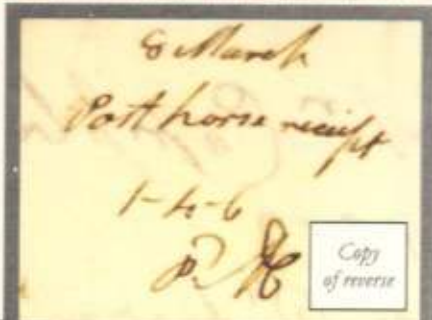 8 March
Post horse receipt
1-4-6
Copy
of reverse